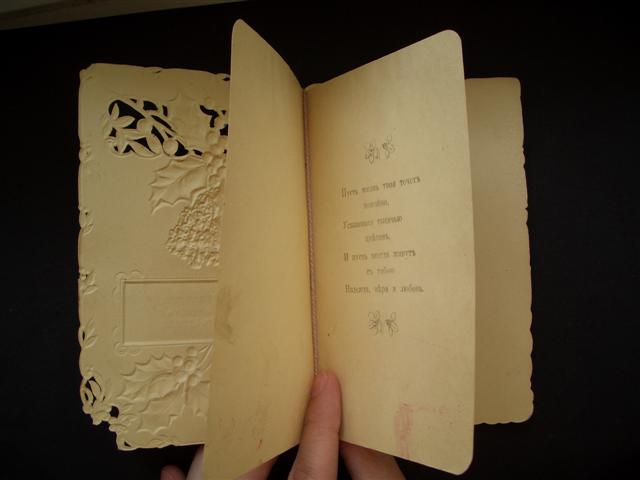 Пусть жизнь твоя течетъ
покойно,
Усыпанная тысячью
цвѣтовъ.
И пусть всегда живутъ
съ тобою
Надежда, вѣра и любовь.